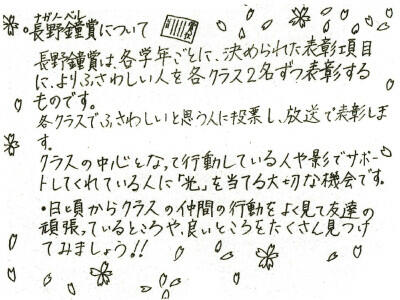 ナガノーベル
・長野鐘賞について
長野鐘賞は、各学年ごとに、決められた表彰項目
に、よりふさわしい人を各クラス2名ずつ表彰する
ものです。
各クラスでふさわしいと思う人に投票し、放送で表彰しま
す。
クラスの中心となって行動している人や影でサポー
トしてくれている人に「光」を当てる大切な機会です。
・日頃からクラスの仲間の行動をよく見て友達の
頑張っているところや、良いところをたくさん見つけ
てみましょう!!